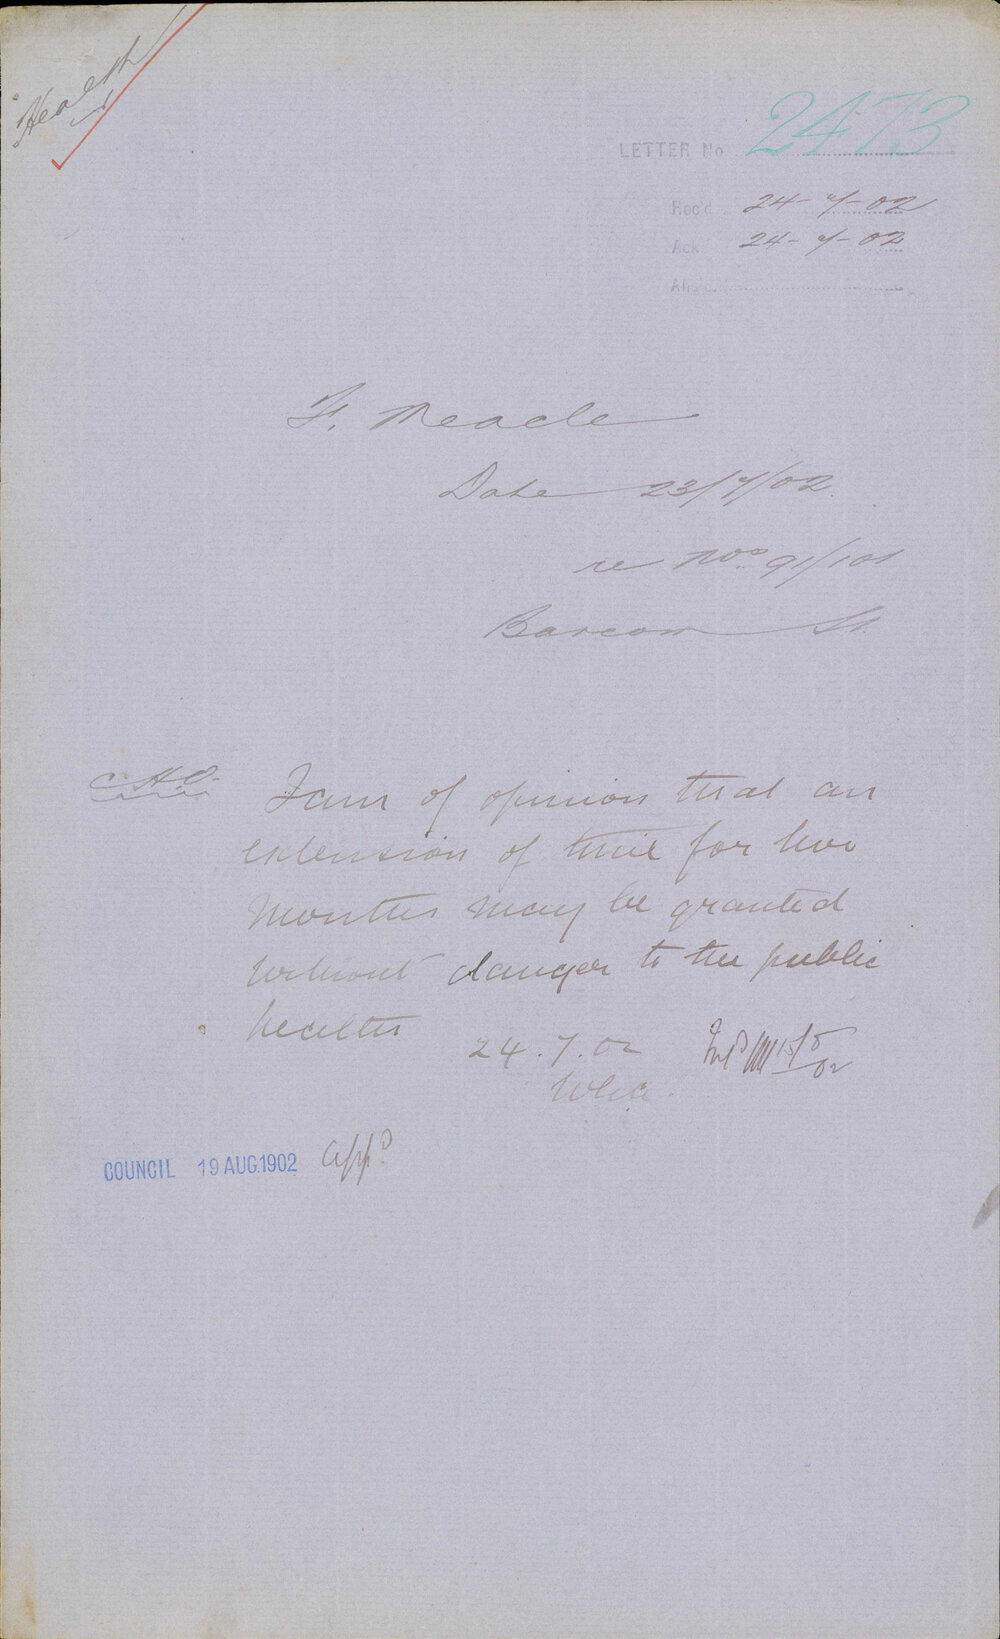 Health
LETTER No 2473
Rec'd 24-7-02
Ack 24-7-02
Ans'd
F. Meade
Date 23/7/02
re Nos. 91/101
Barcom St.
C.H.O. I am of opinion that an
extension of time for two
Months may be granted
without danger to the public
health
24.7.02
15/8/02
COUNCIL 19 AUG.1902 appd